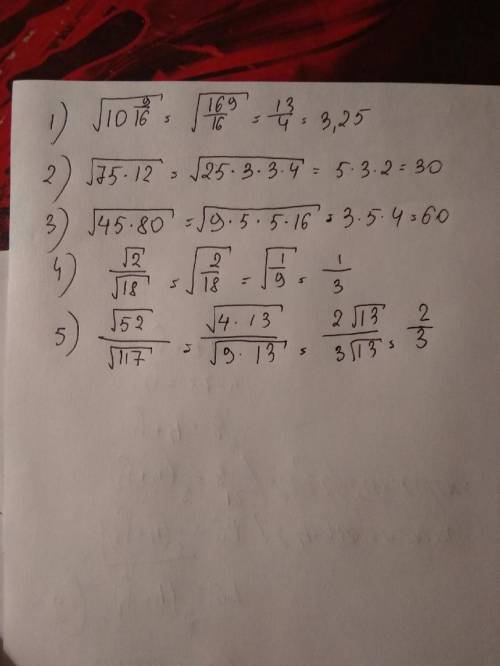 1) √(10 9/16) = √(169/16) = 13/4 = 3,25
2) √(75·12) = √(25·3·3·4) = 5·3·2 = 30
3) √(45·80) = √(9·5·5·16) = 3·5·4 = 60
4) √2/√18 = √(2/18) = √(1/9) = 1/3
5) √52/√117 = √(4·13)/√(9·13) = 2√13/3√13 = 2/3